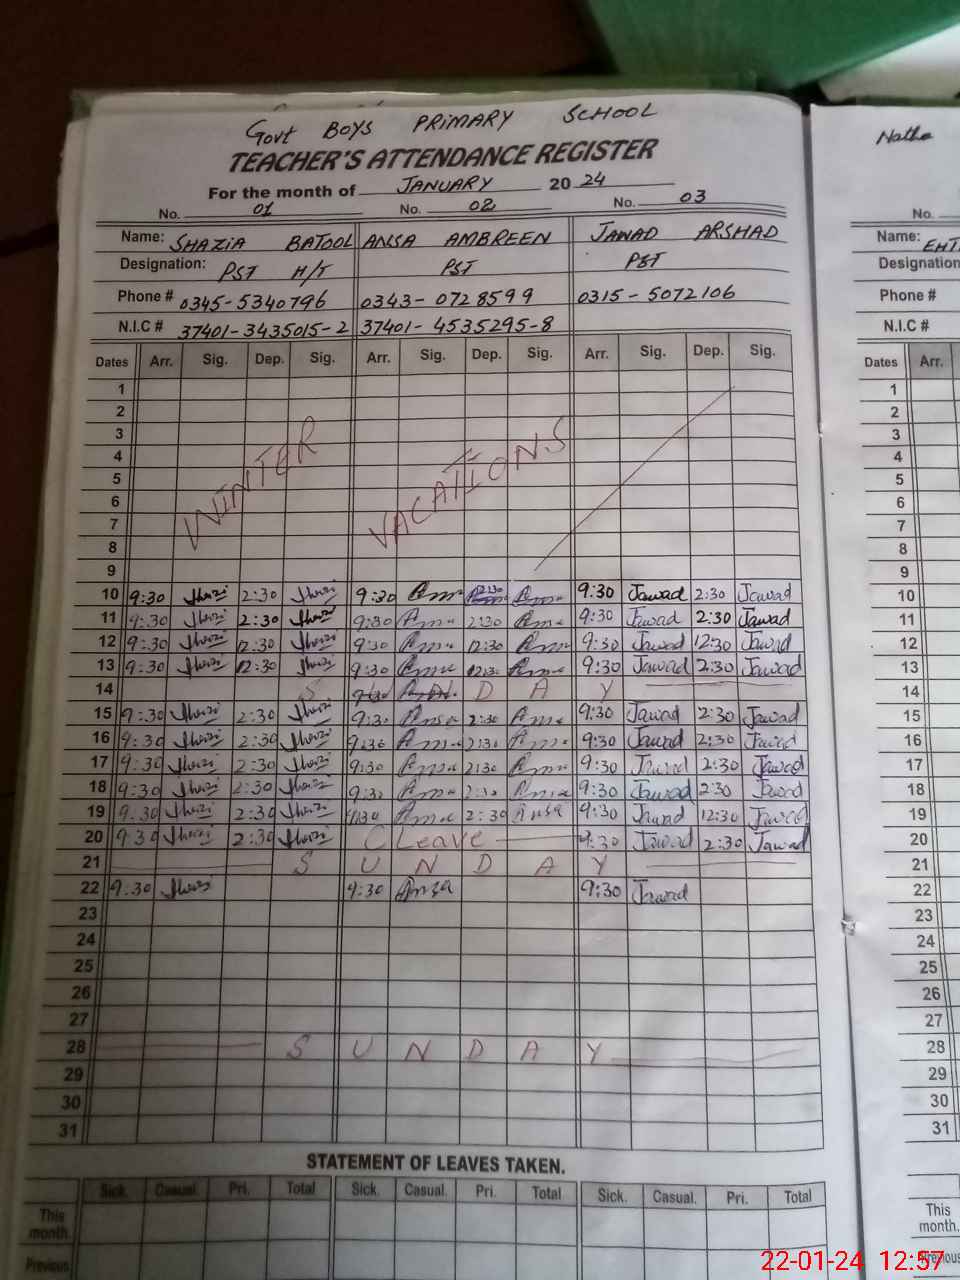 Govt BOYS PRIMARY SCHOOL
TEACHER'S ATTENDANCE REGISTER
For the month of JANUARY 2024
No. 01 No. 02 No. 03
Name: SHAZIA BATOOL ANSA AMBREEN JAWAD ARSHAD
Designation: PST H/T PST PST
Phone # 0345-5340796 0343-0728599 0315-5072106
N.I.C # 37401-3435015-2 37401-4535295-8
Dates Arr. Sig. Dep. Sig. Arr. Sig. Dep. Sig. Arr. Sig. Dep. Sig.
1
2
3
4
5
6
7
8
9
WINTER VACATIONS
10 9:30 2:30 9:30 12:30 9:30 Jawad 2:30 Jawad
11 9:30 2:30 9:30 2:30 9:30 Jawad 2:30 Jawad
12 9:30 12:30 9:30 12:30 9:30 Jawad 12:30 Jawad
13 9:30 12:30 9:30 12:30 9:30 Jawad 2:30 Jawad
14 S D A Y
15 9:30 2:30 9:30 2:30 9:30 Jawad 2:30 Jawad
16 9:30 2:30 9:30 2:30 9:30 Jawad 2:30 Jawad
17 9:30 2:30 9:30 2:30 9:30 Jawad 2:30 Jawad
18 9:30 2:30 9:30 2:30 9:30 Jawad 2:30 Jawad
19 9:30 2:30 9:30 2:30 Ansa 9:30 Jawad 12:30 Jawad
20 9:30 2:30 C Leave 9:30 Jawad 2:30 Jawad
21 S U N D A Y
22 9:30 9:30 Ansa 9:30 Jawad
23
24
25
26
27
28 S U N D A Y
29
30
31
STATEMENT OF LEAVES TAKEN.
Sick. Casual. Pri. Total Sick. Casual. Pri. Total Sick. Casual. Pri. Total
This month.
Previous
Nathe
No.
Name: EHT
Designation:
Phone #
N.I.C #
Dates Arr.
1
2
3
4
5
6
7
8
9
10
11
12
13
14
15
16
17
18
19
20
21
22
23
24
25
26
27
28
29
30
31
This month.
Previous
22-01-24 12:57